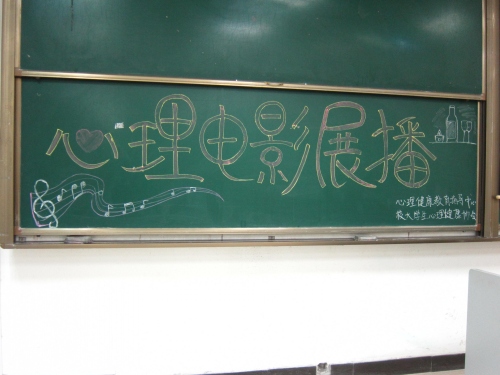 心理电影展播
心理健康教育指导中心
校大学生心理健康协会